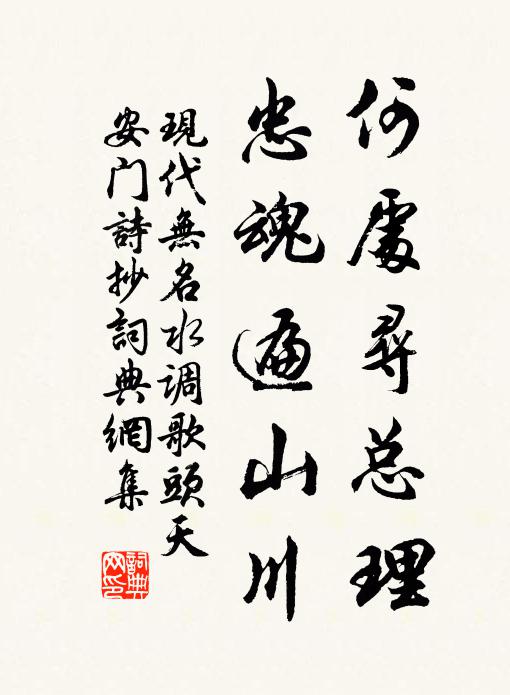 何處尋总理
忠魂遍山川
現代無名水调歌頭天
安门詩抄詞典網集
詞典网印